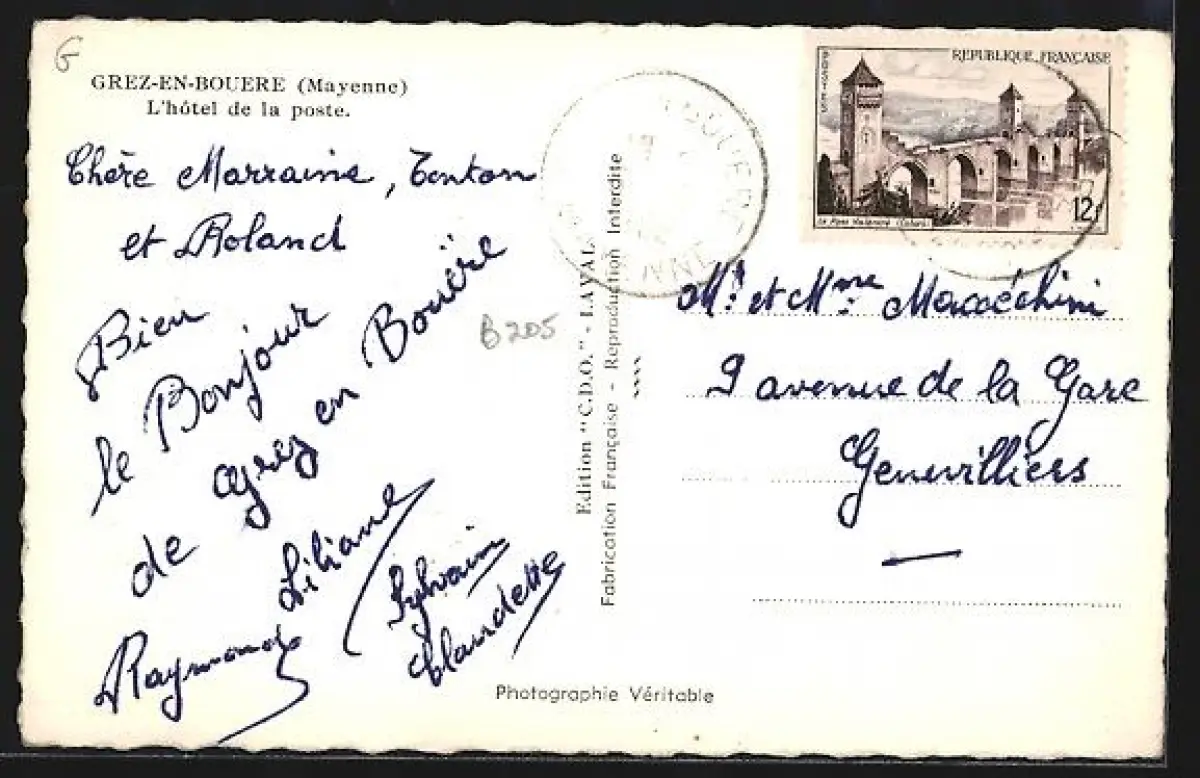 G
GREZ-EN-BOUERE (Mayenne)
L'hôtel de la poste.
Chère Marraine, Tonton
et Roland
Bien
le Bonjour
de Grez en Bouëre
Liliane
Raymond
Sylvain
Claudette
B205
Edition "C.D.O." - LAVAL
Fabrication Française - Reproduction Interdite
Photographie Véritable
REPUBLIQUE FRANÇAISE
POSTES
Le Pont Valentré (Cahors)
12f
Mr. et Mme.
9 avenue de la Gare
Genevilliers